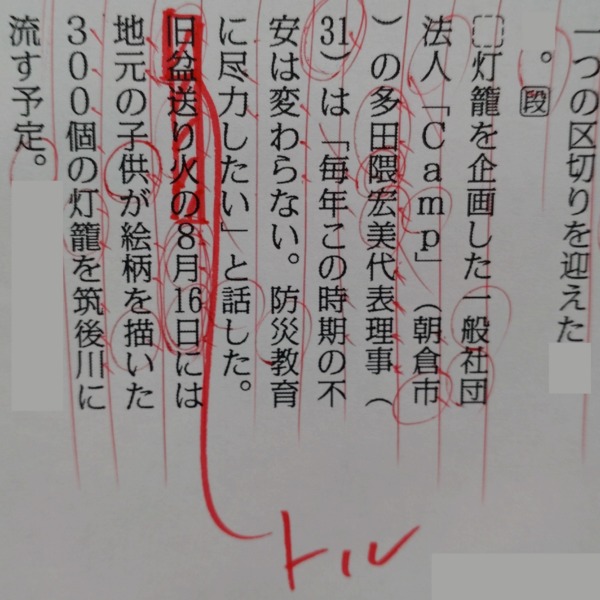 一つの区切りを迎えた
。段
灯籠を企画した一般社団
法人「Camp」(朝倉市
)の多田隈宏美代表理事(
31)は「毎年この時期の不
安は変わらない。防災教育
に尽力したい」と話した。
旧盆送り火の8月16日には
地元の子供が絵柄を描いた
300個の灯籠を筑後川に
流す予定。
トル